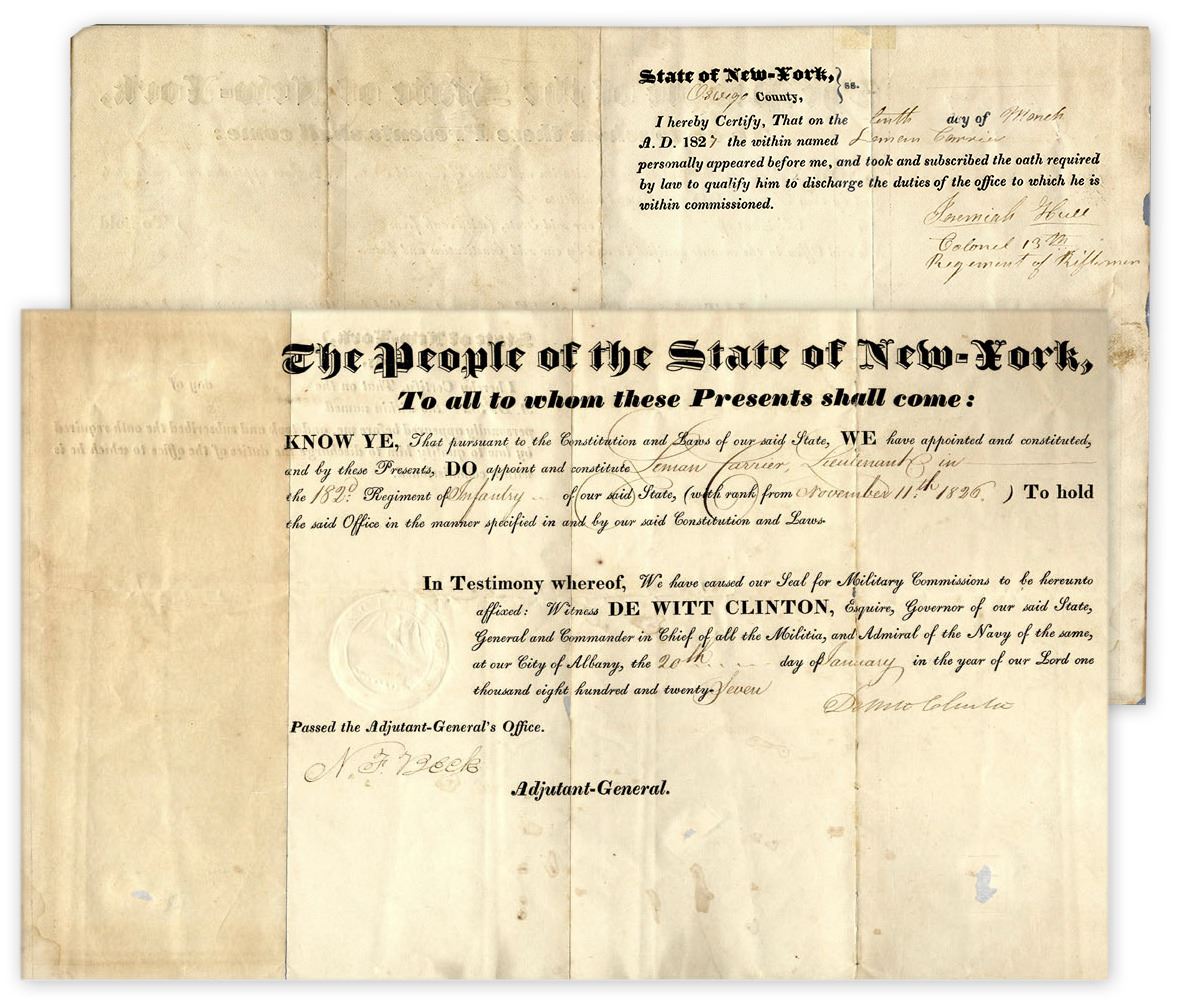 State of New-York, } ss.
Oswego County,
I hereby Certify, That on the tenth day of March
A. D. 1827 the within named Leman Carrier
personally appeared before me, and took and subscribed the oath required
by law to qualify him to discharge the duties of the office to which he is
within commissioned.
Jeremiah Hull
Colonel 13th
Regiment of Riflemen
The People of the State of New-York,
To all to whom these Presents shall come:
KNOW YE, That pursuant to the Constitution and Laws of our said State, WE have appointed and constituted,
and by these Presents, DO appoint and constitute Leman Carrier, Lieutenant in
the 182d. Regiment of Infantry of our said State, (with rank from November 11th 1826. ) To hold
the said Office in the manner specified in and by our said Constitution and Laws.
In Testimony whereof, We have caused our Seal for Military Commissions to be hereunto
affixed: Witness DE WITT CLINTON, Esquire, Governor of our said State,
General and Commander in Chief of all the Militia, and Admiral of the Navy of the same,
at our City of Albany, the 20th day of January in the year of our Lord one
thousand eight hundred and twenty-Seven
DeWitt Clinton
Passed the Adjutant-General's Office.
N. F. Beck
Adjutant-General.